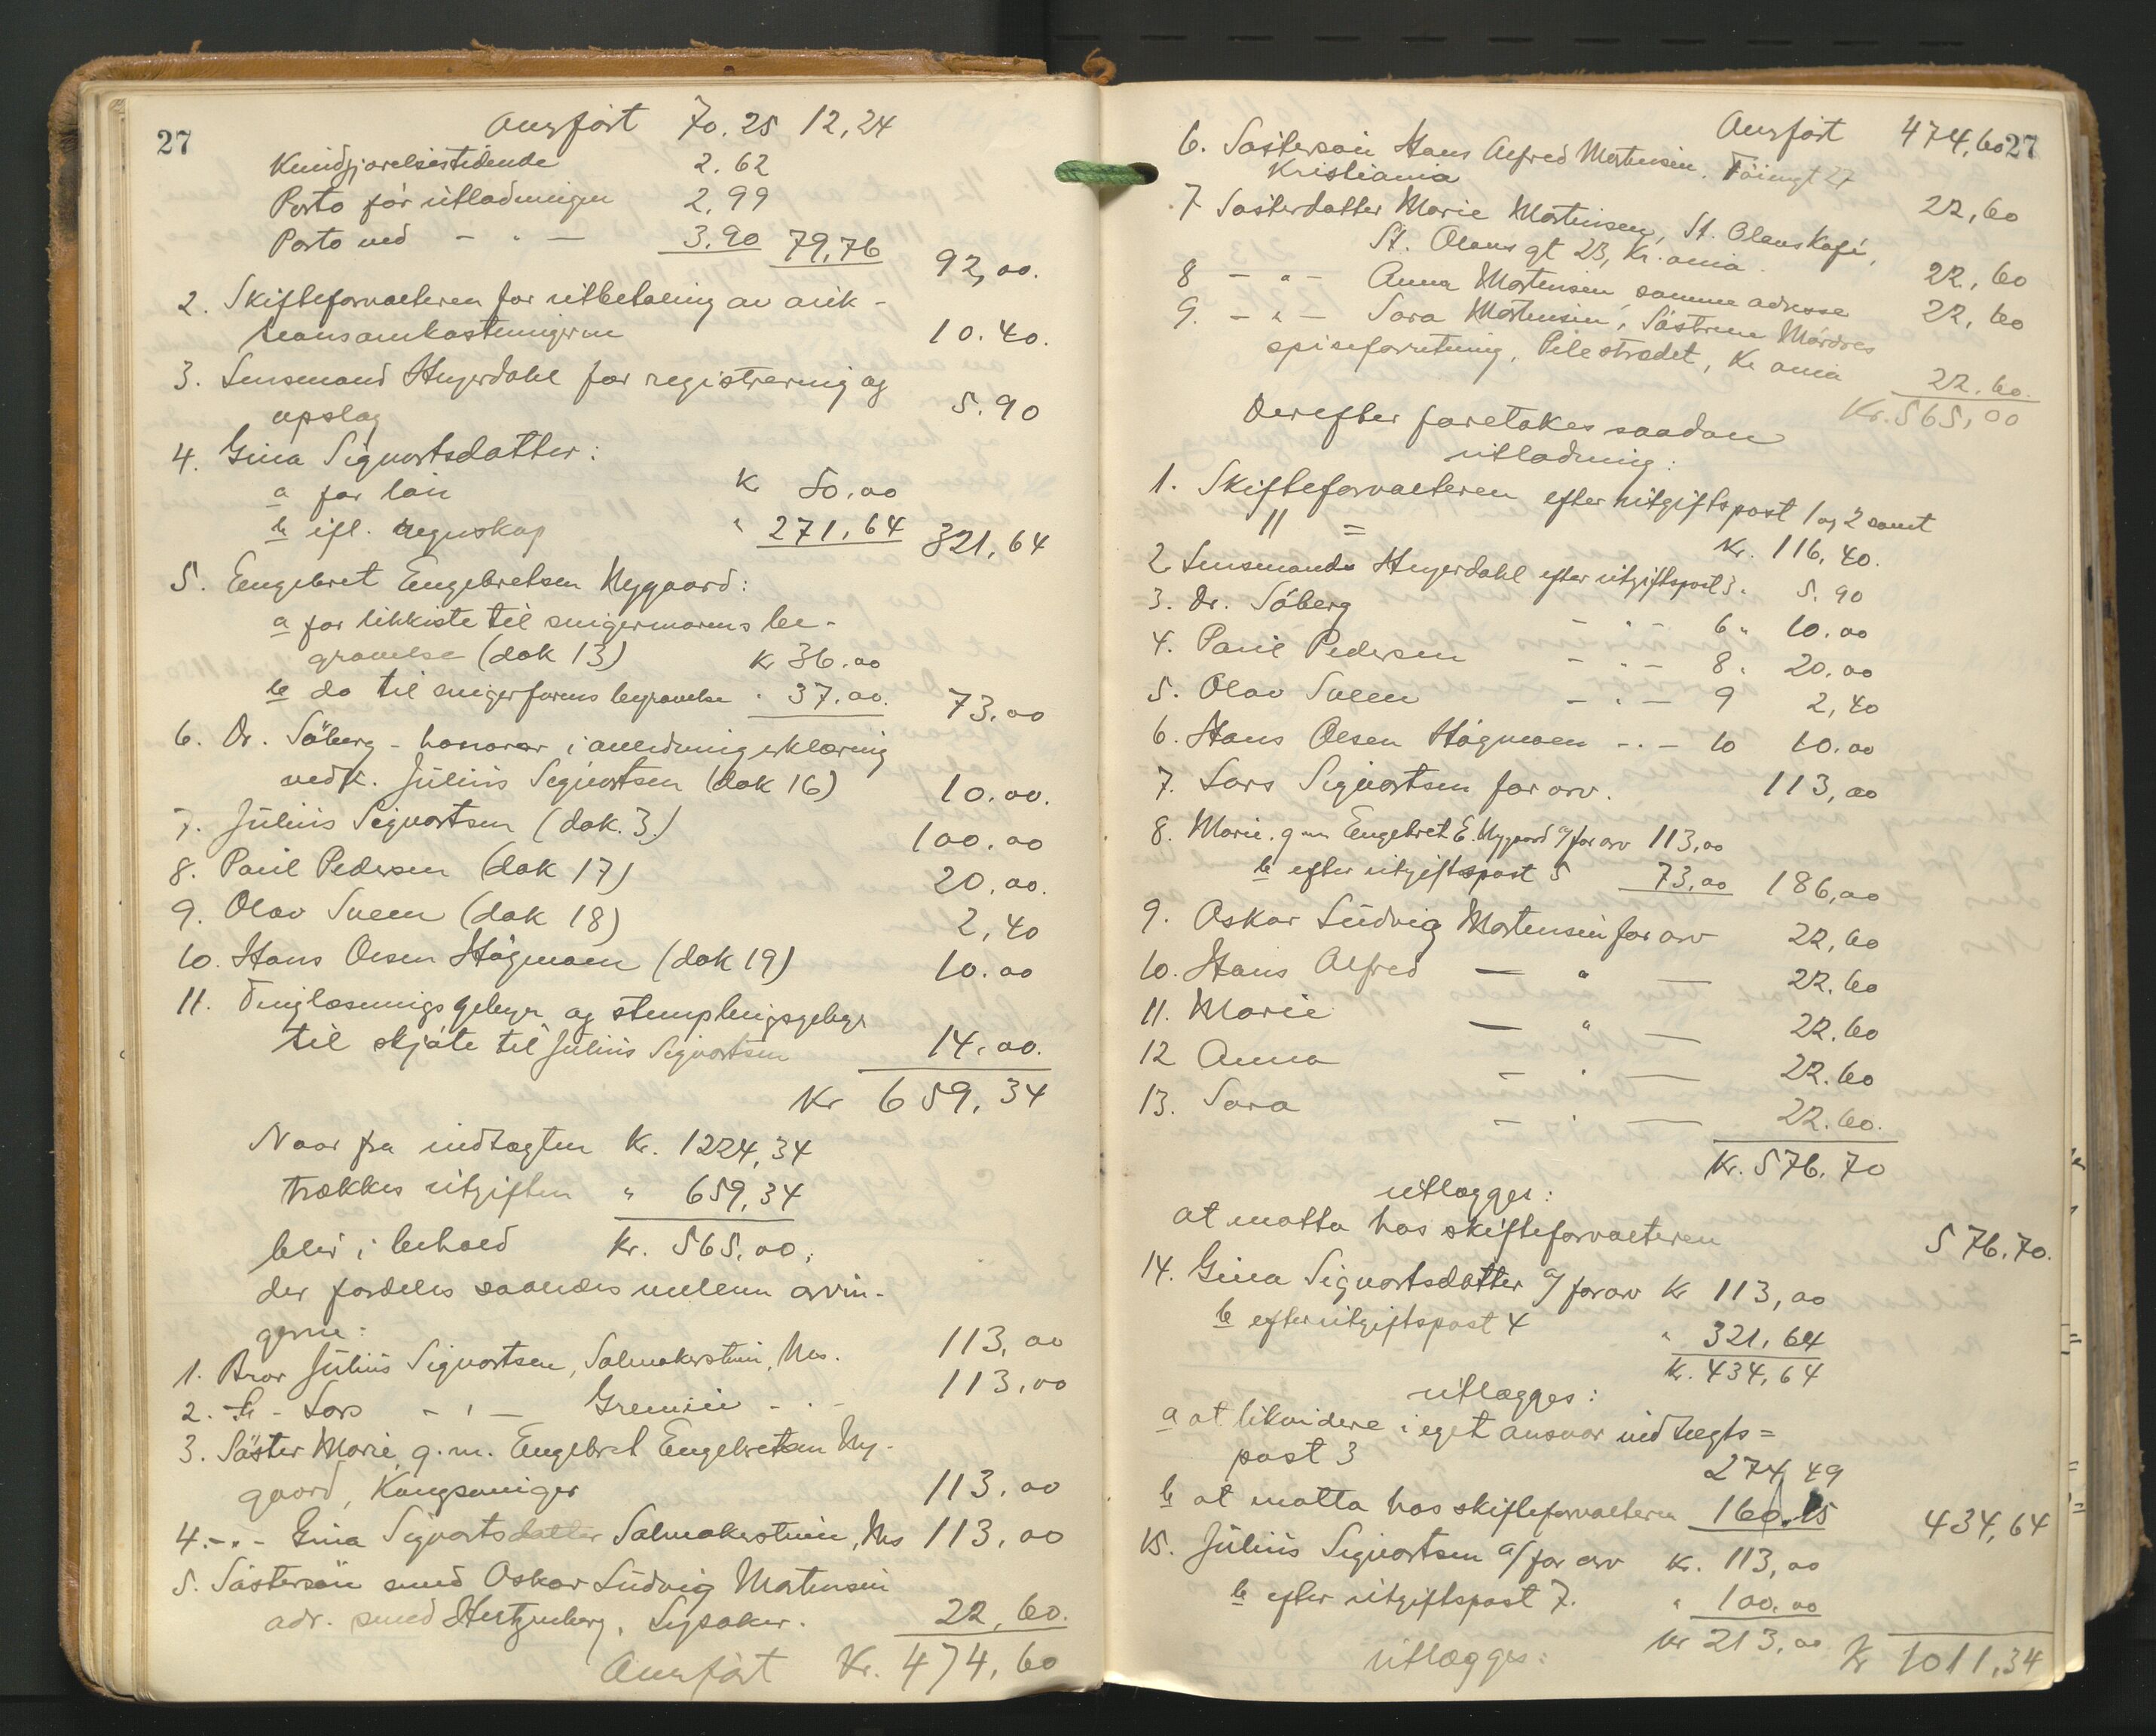 27
Overført 70.25 12,24
Kundgjørelsestidende 2.62
Porto før utlodningen 2.99
Porto ved - " - 3.90 79,76 92,00.
2. Skifteforvalteren for utbetaling av auk-
sjonsomkostningerne 10.40.
3. Lensmand Heyerdahl for registrering og
opslag 5.90
4. Gina Sigvartsdatter:
a for lån Kr 50.00
b ifl. regnskap " 271,64 321,64
5. Engebret Engebretsen Nygaard:
a for likkiste til svigermorens be-
gravelse (dok 13) Kr 36.00
b do til svigerfarens begravelse " 37.00. 73.00
6. Dr. Söberg - honorar i anledning erklæring
vedk. Julius Sigvartsen (dok 16) 10.00.
7. Julius Sigvartsen (dok. 3.) 100.00
8. Paul Pedersen (dok 17) 20.00.
9. Olav Sveen (dok 18) 2,40
10. Hans Olsen Högmoen (dok 19) 10.00
11. Tinglæsningsgebyr og stemplingsgebyr
til skjöte til Julius Sigvartsen 14.00.
Kr 659,34
Naar fra indtægten Kr. 1224,34
trækkes utgiften " 659,34
blir i behold Kr. 565.00,
der fordeles saaledes mellem arvin-
gerne:
1. Bror Julius Sigvartsen, Salmakerstuen, Nes. 113,00
2. - " - Lars - " - Gremin - " - 113,00
3. Söster Marie g.m. Engebret Engebretsen Ny-
gaard, Kongsvinger 113.00
4. - " - Gina Sigvartsdatter Salmakerstuen, Nes 113,00
5. Söstersön smed Oskar Ludvig Martinsen
adr. smed Hertzenberg, Lysaker. 22,60.
Overfört Kr. 474,60
27
Overfört 474,60
6. Söstersön Hans Alfred Martinsen. Töiengt 27
Kristiania 22,60
7. Sösterdatter Marie Martinsen, St. Olavs Kafé,
St. Olavs gt 23, Kr.ania. 22,60
8 - " - Anna Martinsen samme adresse 22,60
9. - " - Sara Martinsen, Söstrene Mördres
spiseforretning, Pilestrædet, Kr ania 22.60.
Kr. 565,00
Derefter foretakes saadan
utlodning:
1. Skifteforvalteren efter utgiftspost 1 og 2 samt
11 = Kr. 116,40.
2. Lensmand Heyerdahl efter utgiftspost 3. 5.90
3. Dr. Söberg - " - 6 " 10.00
4. Paul Pedersen - " - 8 " 20.00
5. Olav Sveen - " - 9 2,40
6. Hans Olsen Högmoen - " - 10 10.00
7. Lars Sigvartsen for arv. 113,00
8. Marie g.m. Engebret E. Nygaard a/ for arv 113,00
b efter utgiftspost 5 73,00 186,00
9. Oskar Ludvig Martinsen for arv 22,60
10. Hans Alfred - " - 22.60
11. Marie - " - 22.60
12 Anna - " - 22.60
13. Sara - " - 22.60.
Kr. 576.70
utlægges:
at motta hos skifteforvalteren 576.70.
14. Gina Sigvartsdatter a/ for arv Kr 113,00
b efter utgiftspost 4 " 321,64
Kr. 434,64
utlægges:
a at likvidere i eget ansvar indtægts=
post 3 274,49
b at motta hos skifteforvalteren 160.15 434,64
15. Julius Sigvartsen a/ for arv Kr. 113,00
b efter utgiftspost 7. " 100.00
Kr 213,00
utlægges: Kr 1011,34